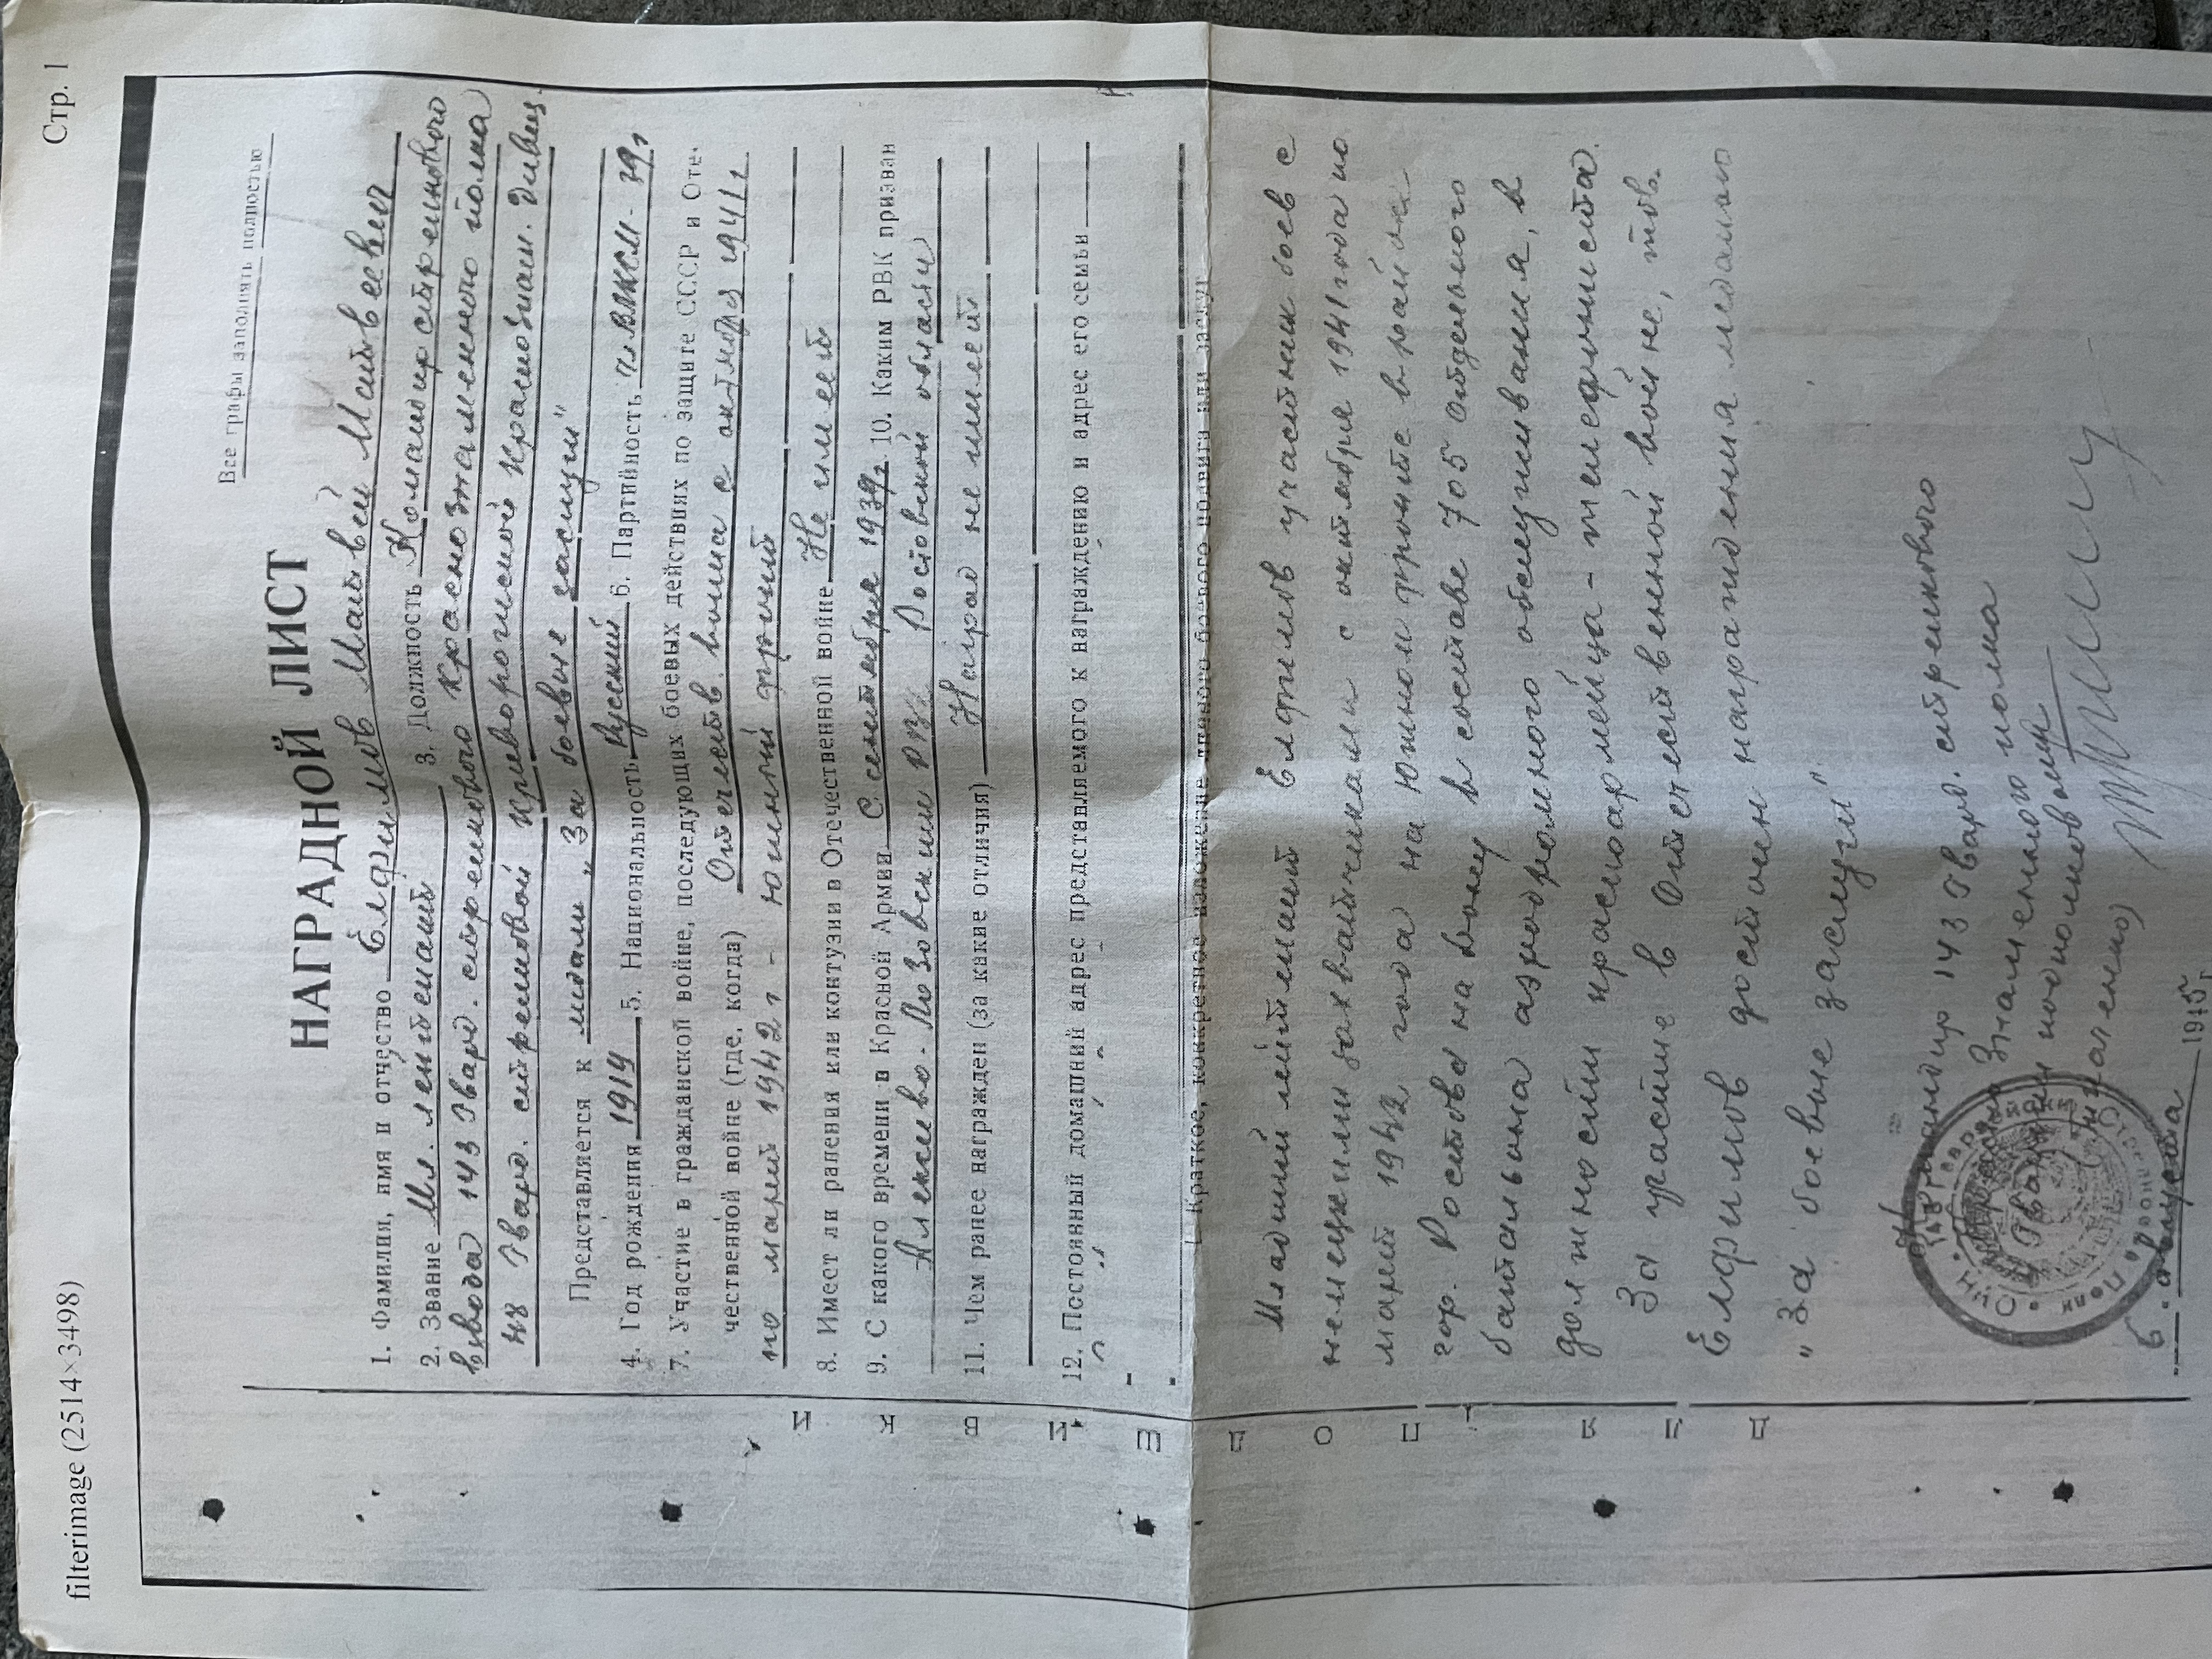 filterimage (2514×3498) Стр. 1
Все графы заполнять полностью
НАГРАДНОЙ ЛИСТ
1. Фамилия, имя и отчество Елфимов Матвей Матвеевич
2. Звание Мл. лейтенант 3. Должность Командир стрелкового
взвода 143 гвард. стрелкового Краснознаменного полка
48 гвард. стрелковой Криворожской Краснознам. дивиз.
Представляется к медали „За боевые заслуги"
4. Год рождения 1919 5. Национальность Русский 6. Партийность чл ВЛКСМ - 39 г
7. Участие в гражданской войне, последующих боевых действиях по защите СССР и Оте-
чественной войне (где, когда) Отечеств. война с октября 1941 г
по март 1942 г - южный фронт
8. Имеет ли ранения или контузии в Отечественной войне Не имеет
9. С какого времени в Красной Армии С сентября 1939 г. 10. Каким РВК призван
Алексево-Лозовским РВК Ростовской области
11. Чем ранее награжден (за какие отличия) Наград не имеет
12. Постоянный домашний адрес представляемого к награждению и адрес его семьи
I. Краткое, конкретное изложение личного боевого подвига или заслуг
Младший лейтенант Елфимов участник боев с
немецкими захватчиками с октября 1941 года по
март 1942 года на Южном фронте в районе
гор. Ростова на Дону в составе 705 отдельного
батальона аэродромного обслуживания, в
должности красноармейца - телефониста.
За участие в Отечественной войне, тов.
Елфимов достоин награждения медалью
„За боевые заслуги"
Командир 143 гвард. стрелкового
Знаменного полка
гвардии подполковник
6 августа 1945 г.